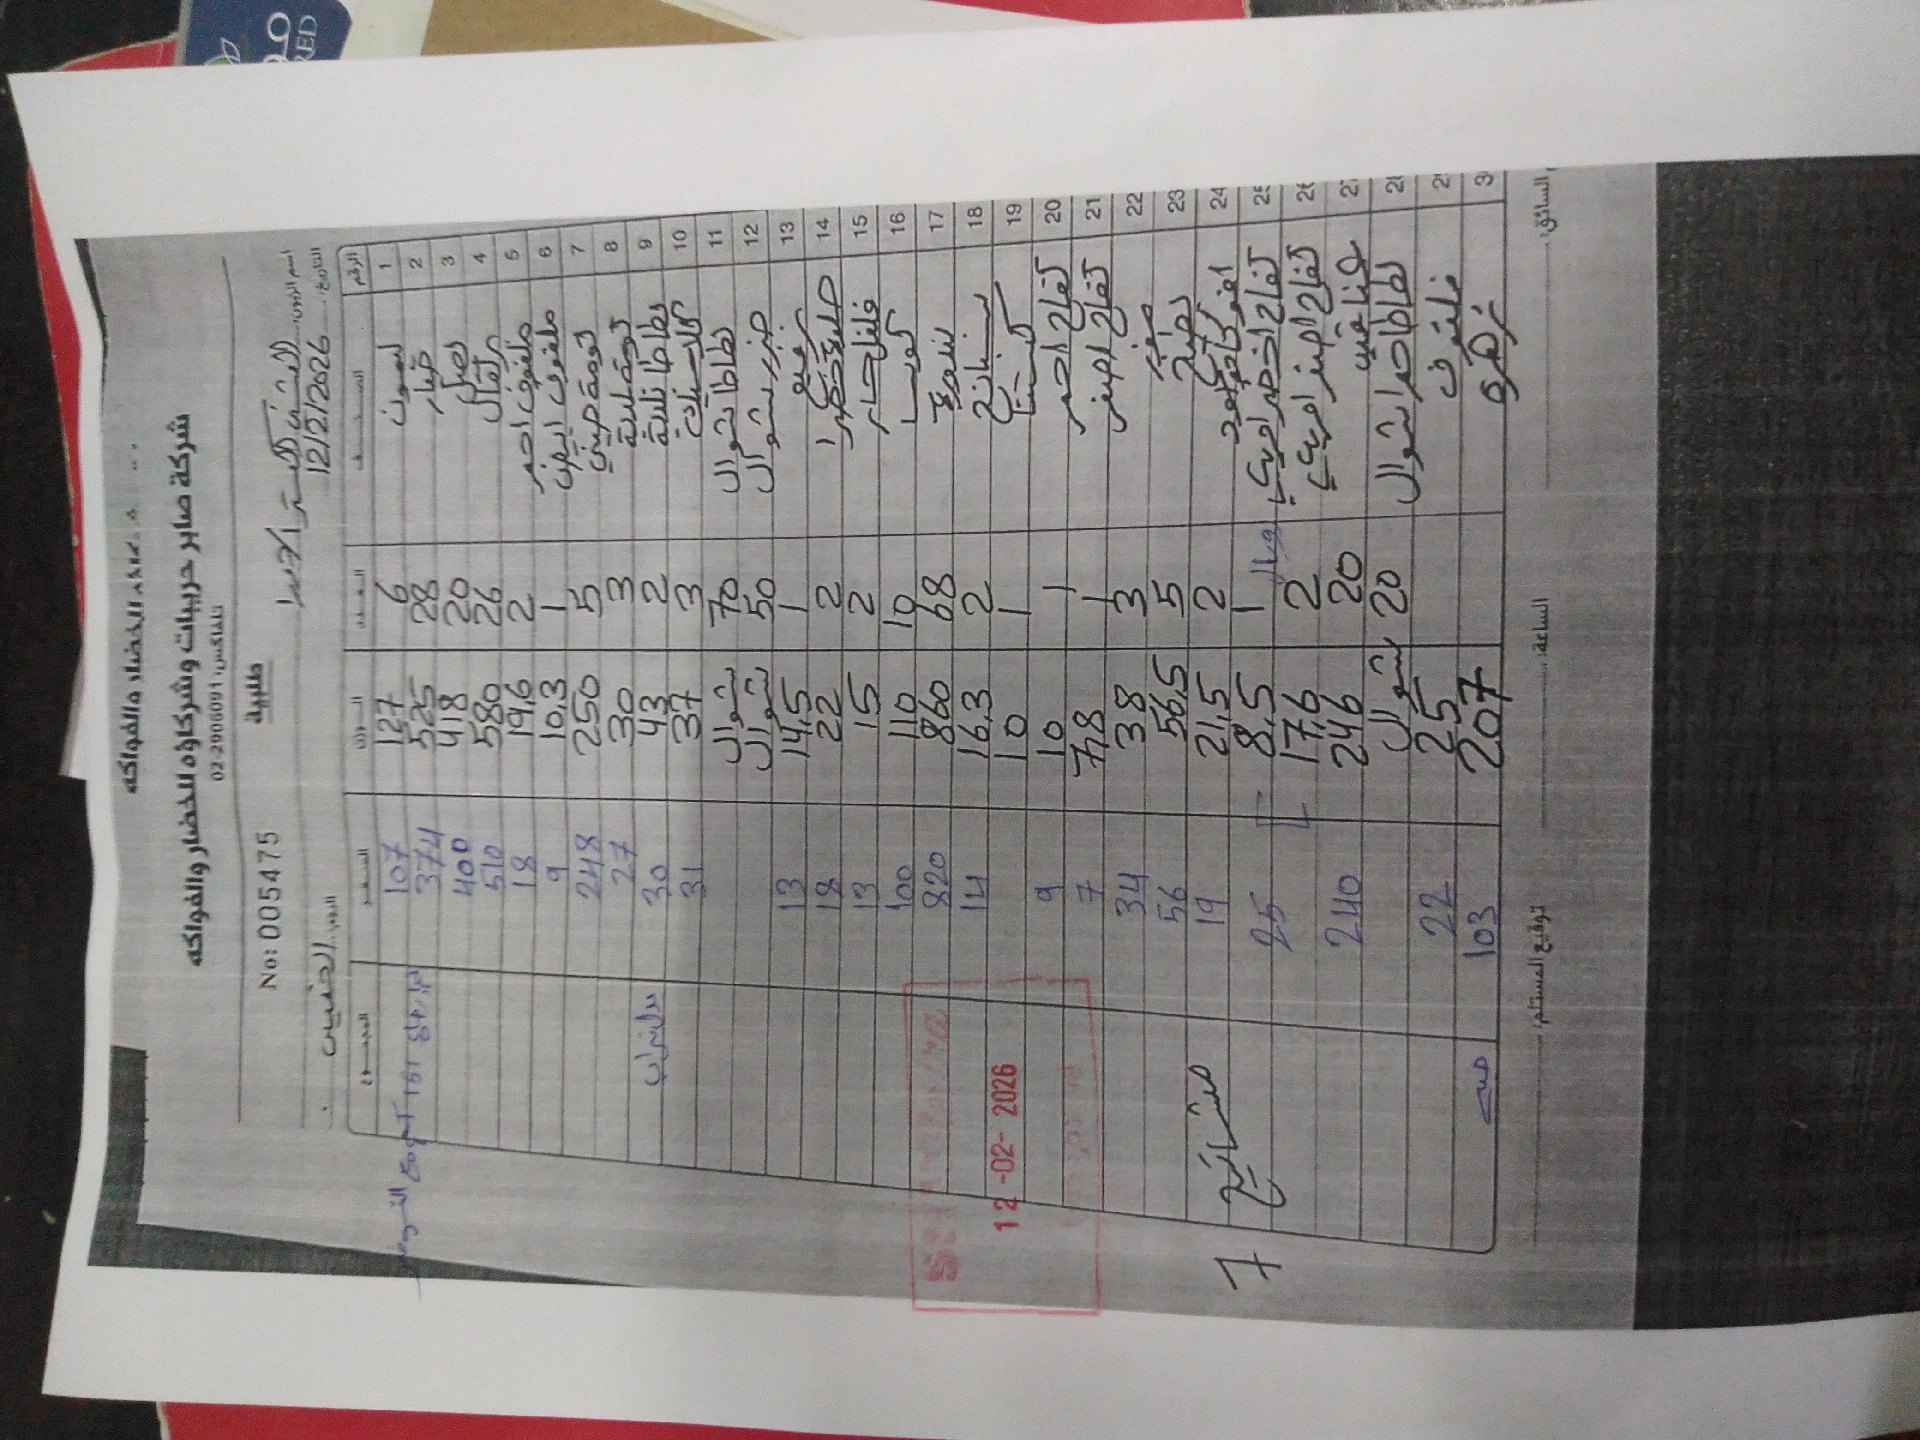 شركة صابر حريبات وشركاؤه للخضار والفواكه
تلفاكس: 02-2906091
طلبية
No: 005475
اسم الزبون:
التاريخ: 12/2/2026
اليوم: الخميس
الرقم الصنف العدد الوزن السعر المجموع
1 ليمون 6 127 107
2 خيار 28 525 374
3 بصل 20 418 400
4 برتقال 26 580 510
5 ملفوف احمر 2 19,6 18
6 ملفوف ابيض 1 10,3 9
7 ثومة صيني 5 250 248
8 ثومة بلدية 3 30 27
9 بطاطا 2 43 30
10 كلمنتينا 3 37 31
11 بطاطا شوال 70 شوال
12 جزر شوال 50 شوال
13 1 14,5 13
14 2 22 18
15 فلفل حار 2 15 13
16 كوسا 10 110 100
17 بندورة 68 860 820
18 سبانخ 2 16,3 14
19 1 10
20 تفاح احمر 1 10 9
21 تفاح اصفر 1 7,8 7
22 3 38 34
23 بطيخ 5 56,5 56
24 افوكادو 2 21,5 19
25 تفاح اخضر اوروبي 1 8,5 25
26 تفاح اصفر اوروبي 2 17,6
27 20 246 240
28 بطاطا حمرا شوال 20 شوال
29 ملفوف 25 22
30 زهرة 207 103
12-02-2026
7
توقيع المستلم:
الساعة:
السائق: